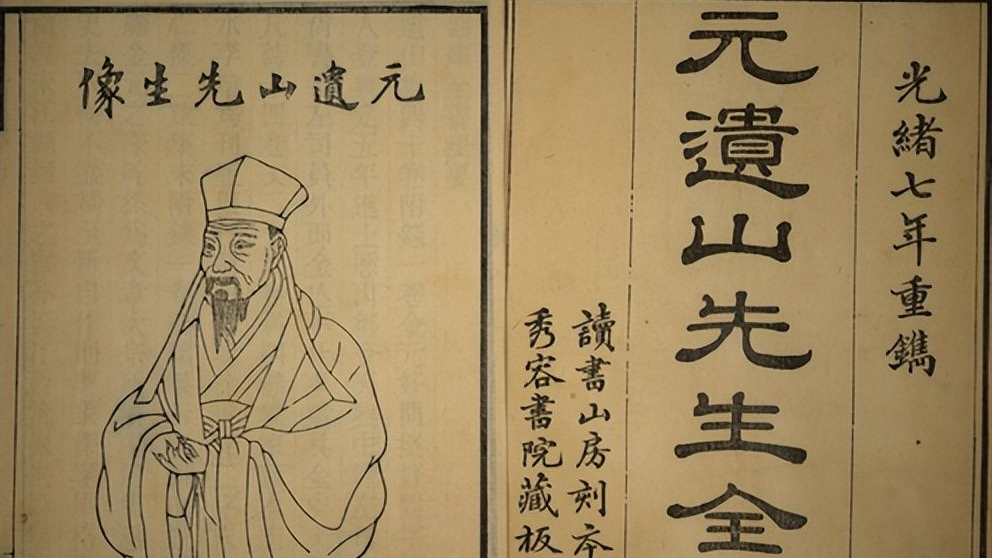 光緒七年重鐫
元遺山先生全
讀書山房刻本
秀容書院藏板
元遺山先生像